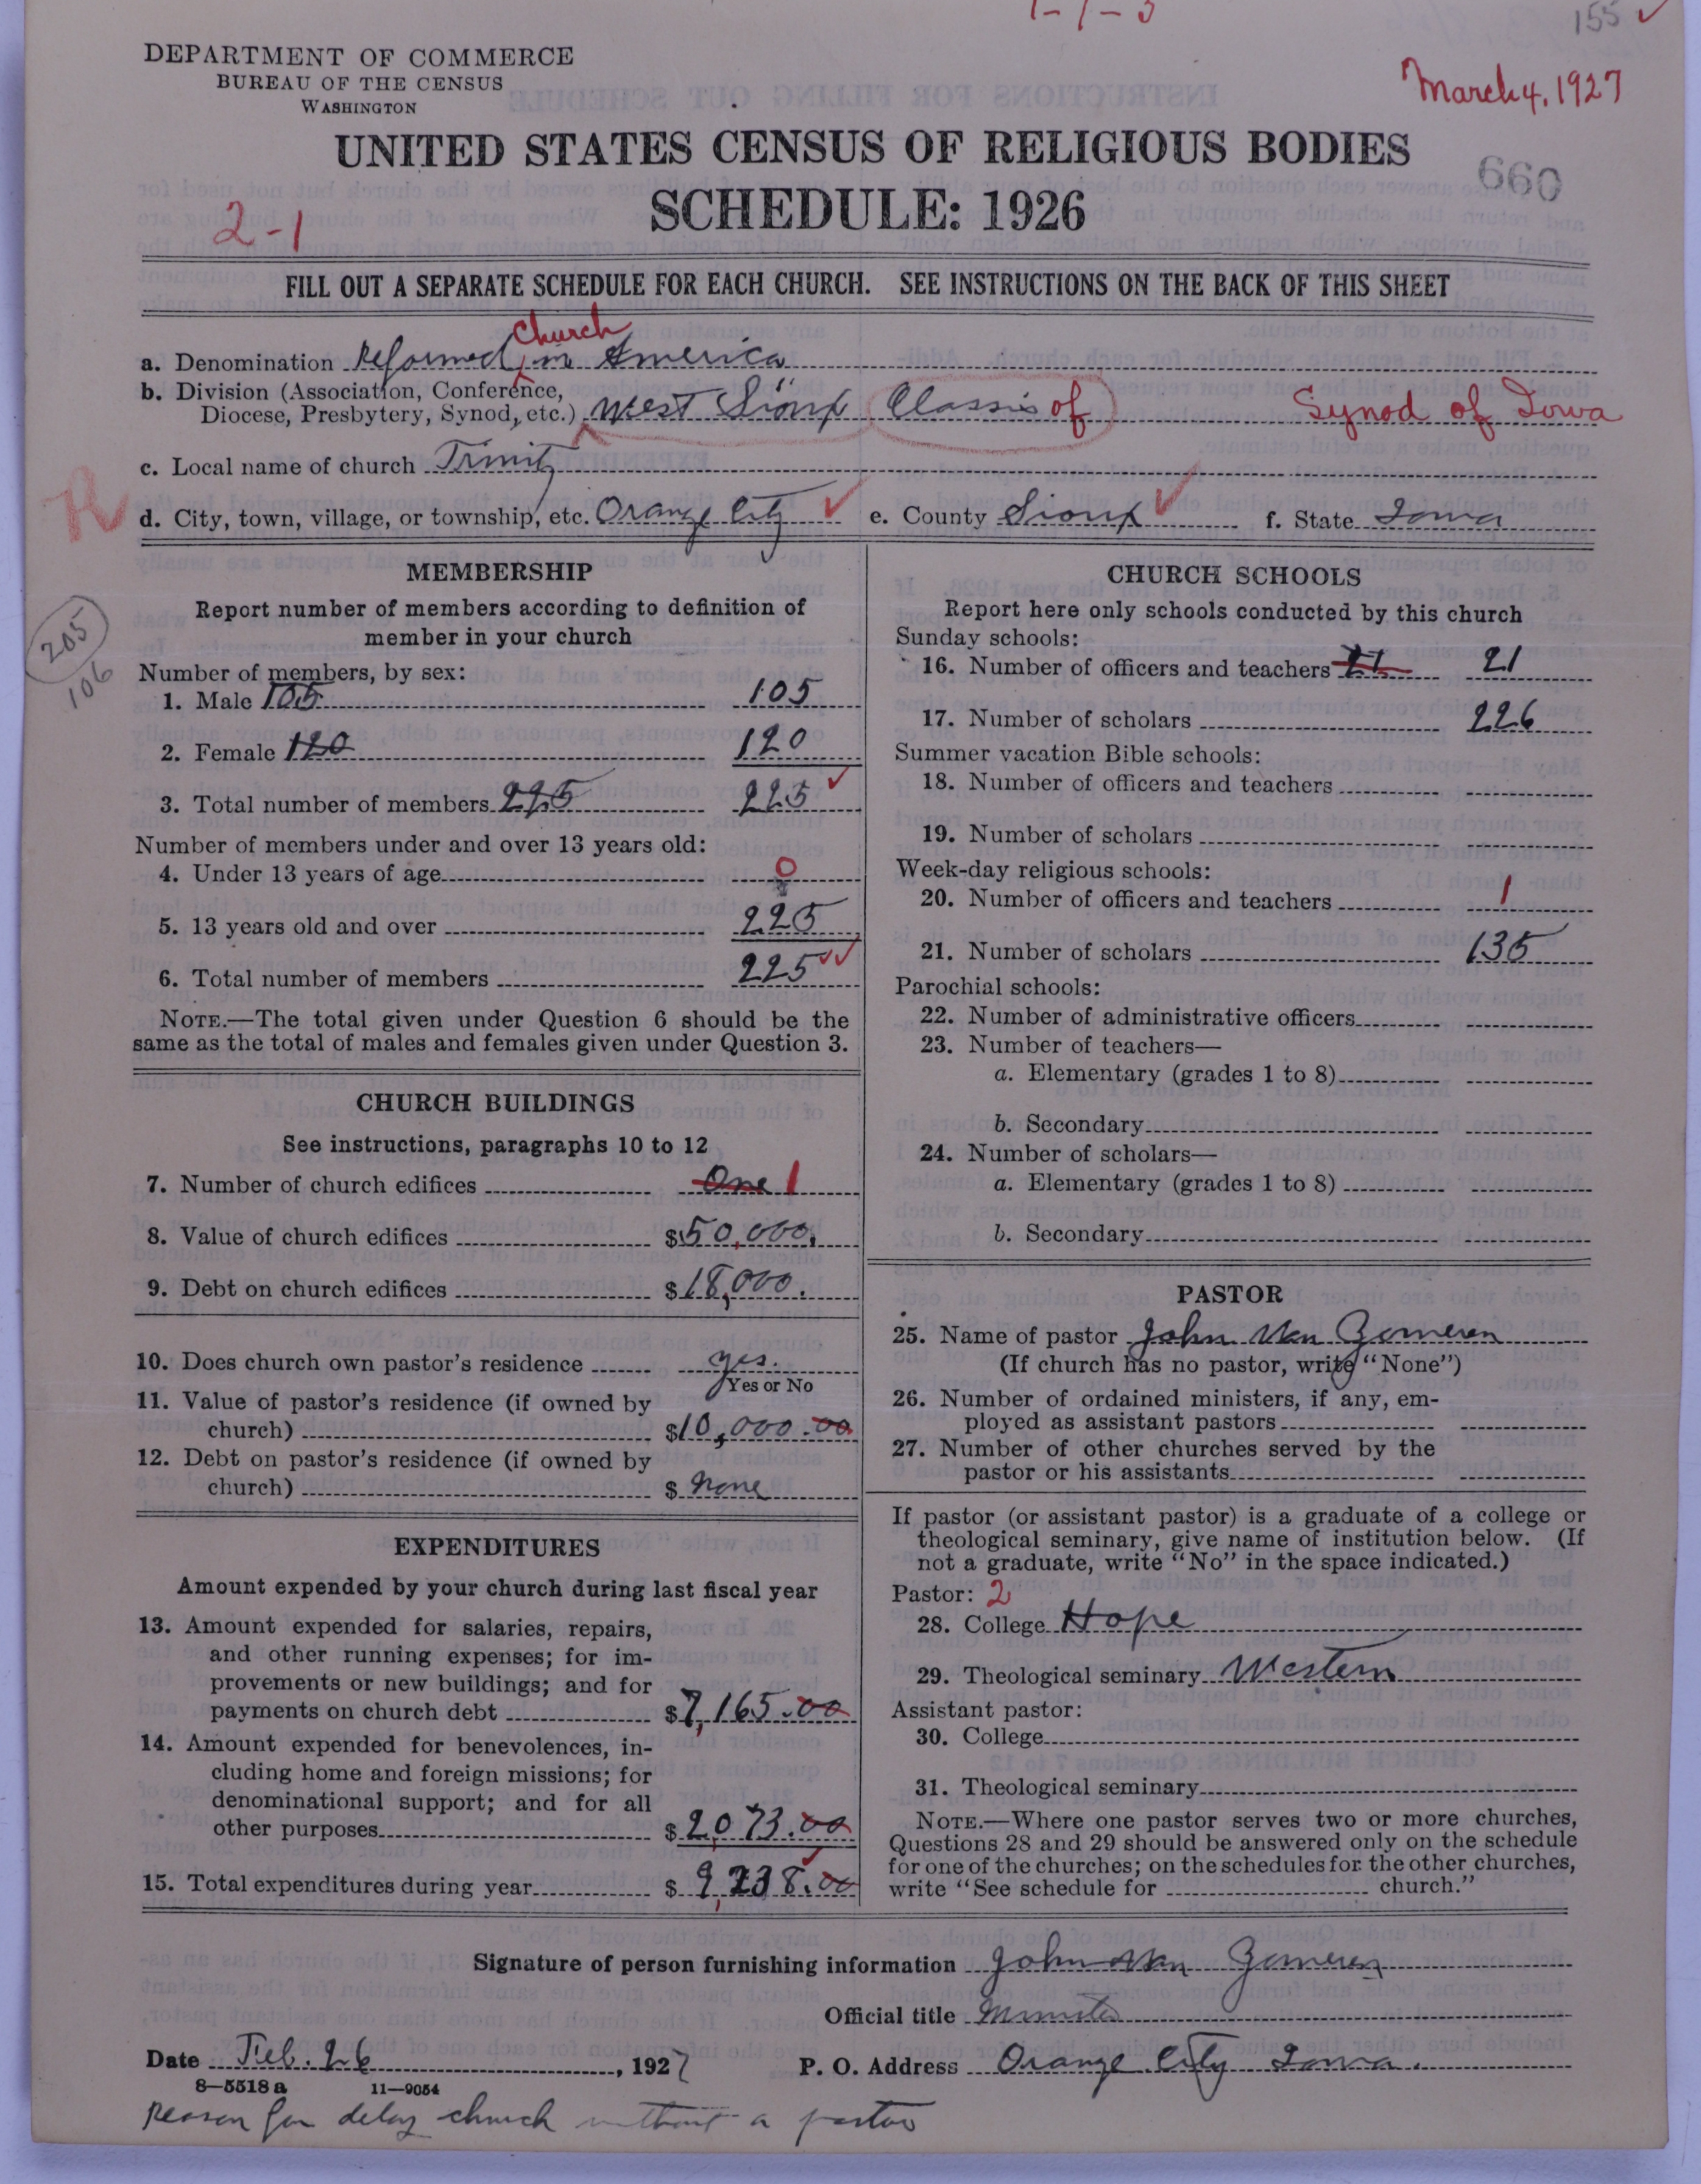 1-1-3
155 ✓
DEPARTMENT OF COMMERCE
BUREAU OF THE CENSUS
WASHINGTON
March 4, 1927
UNITED STATES CENSUS OF RELIGIOUS BODIES
SCHEDULE: 1926
660
2-1
FILL OUT A SEPARATE SCHEDULE FOR EACH CHURCH. SEE INSTRUCTIONS ON THE BACK OF THIS SHEET
a. Denomination Reformed Church in America
b. Division (Association, Conference,
Diocese, Presbytery, Synod, etc.) West Sioux Classis of Synod of Iowa
c. Local name of church Trinity
R
d. City, town, village, or township, etc. Orange City ✓ e. County Sioux ✓ f. State Iowa
MEMBERSHIP
Report number of members according to definition of
member in your church
205
106
Number of members, by sex:
1. Male 105 105
2. Female 120 120
3. Total number of members 225 225 ✓
Number of members under and over 13 years old:
4. Under 13 years of age 0
5. 13 years old and over 225
6. Total number of members 225 ✓✓
NOTE.—The total given under Question 6 should be the
same as the total of males and females given under Question 3.
CHURCH BUILDINGS
See instructions, paragraphs 10 to 12
7. Number of church edifices One 1
8. Value of church edifices $50,000.
9. Debt on church edifices $18,000.
10. Does church own pastor's residence yes.
Yes or No
11. Value of pastor's residence (if owned by
church) $10,000.00
12. Debt on pastor's residence (if owned by
church) $ none
EXPENDITURES
Amount expended by your church during last fiscal year
13. Amount expended for salaries, repairs,
and other running expenses; for im-
provements or new buildings; and for
payments on church debt $7,165.00
14. Amount expended for benevolences, in-
cluding home and foreign missions; for
denominational support; and for all
other purposes $2,073.00
15. Total expenditures during year $9,238.00
CHURCH SCHOOLS
Report here only schools conducted by this church
Sunday schools:
16. Number of officers and teachers 21 21
17. Number of scholars 226
Summer vacation Bible schools:
18. Number of officers and teachers
19. Number of scholars
Week-day religious schools:
20. Number of officers and teachers 1
21. Number of scholars 135
Parochial schools:
22. Number of administrative officers
23. Number of teachers—
a. Elementary (grades 1 to 8)
b. Secondary
24. Number of scholars—
a. Elementary (grades 1 to 8)
b. Secondary
PASTOR
25. Name of pastor John Van Zomeren
(If church has no pastor, write "None")
26. Number of ordained ministers, if any, em-
ployed as assistant pastors
27. Number of other churches served by the
pastor or his assistants
If pastor (or assistant pastor) is a graduate of a college or
theological seminary, give name of institution below. (If
not a graduate, write "No" in the space indicated.)
Pastor: 2
28. College Hope
29. Theological seminary Western
Assistant pastor:
30. College
31. Theological seminary
NOTE.—Where one pastor serves two or more churches,
Questions 28 and 29 should be answered only on the schedule
for one of the churches; on the schedules for the other churches,
write "See schedule for church."
Signature of person furnishing information John Van Zomeren
Official title Minister
Date Feb. 26, 1927 P. O. Address Orange City Iowa.
8—5518 a 11—9054
Reason for delay church without a pastor